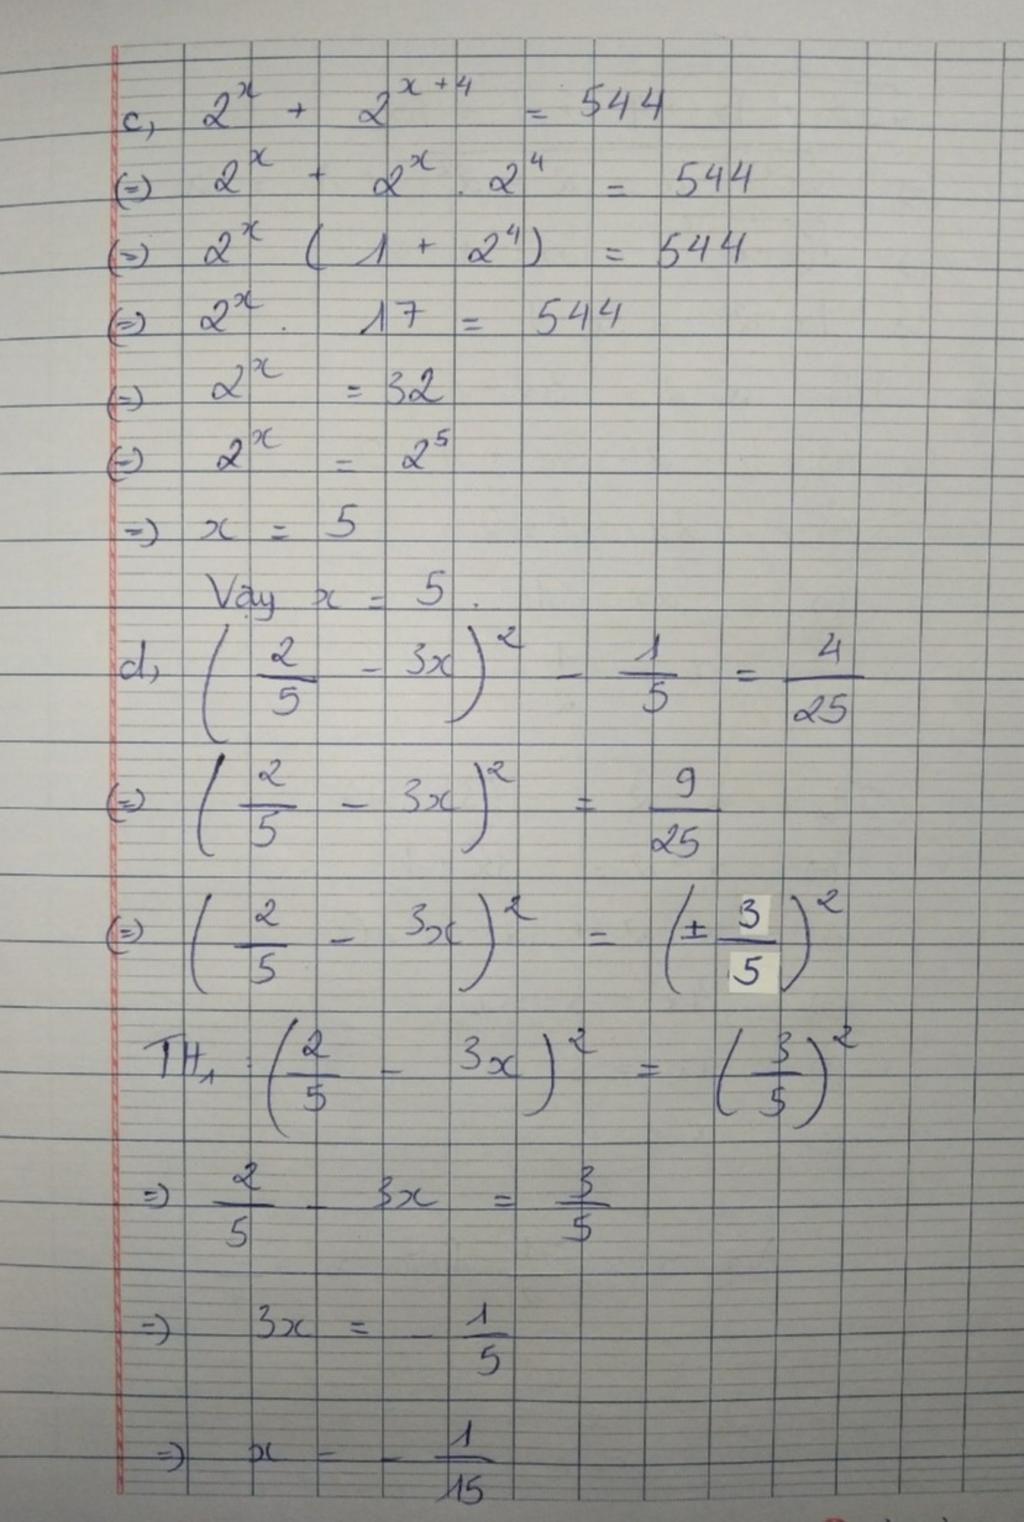 c, 2^x + 2^{x+4} = 544
(=) 2^x + 2^x . 2^4 = 544
(=) 2^x ( 1 + 2^4 ) = 544
(=) 2^x . 17 = 544
(=) 2^x = 32
(=) 2^x = 2^5
=) x = 5
Vậy x = 5 .
d, ( 2/5 - 3x )^2 - 1/5 = 4/25
(=) ( 2/5 - 3x )^2 = 9/25
(=) ( 2/5 - 3x )^2 = ( ± 3/5 )^2
TH1 : ( 2/5 - 3x )^2 = ( 3/5 )^2
=) 2/5 - 3x = 3/5
=) 3x = - 1/5
=) x = - 1/15